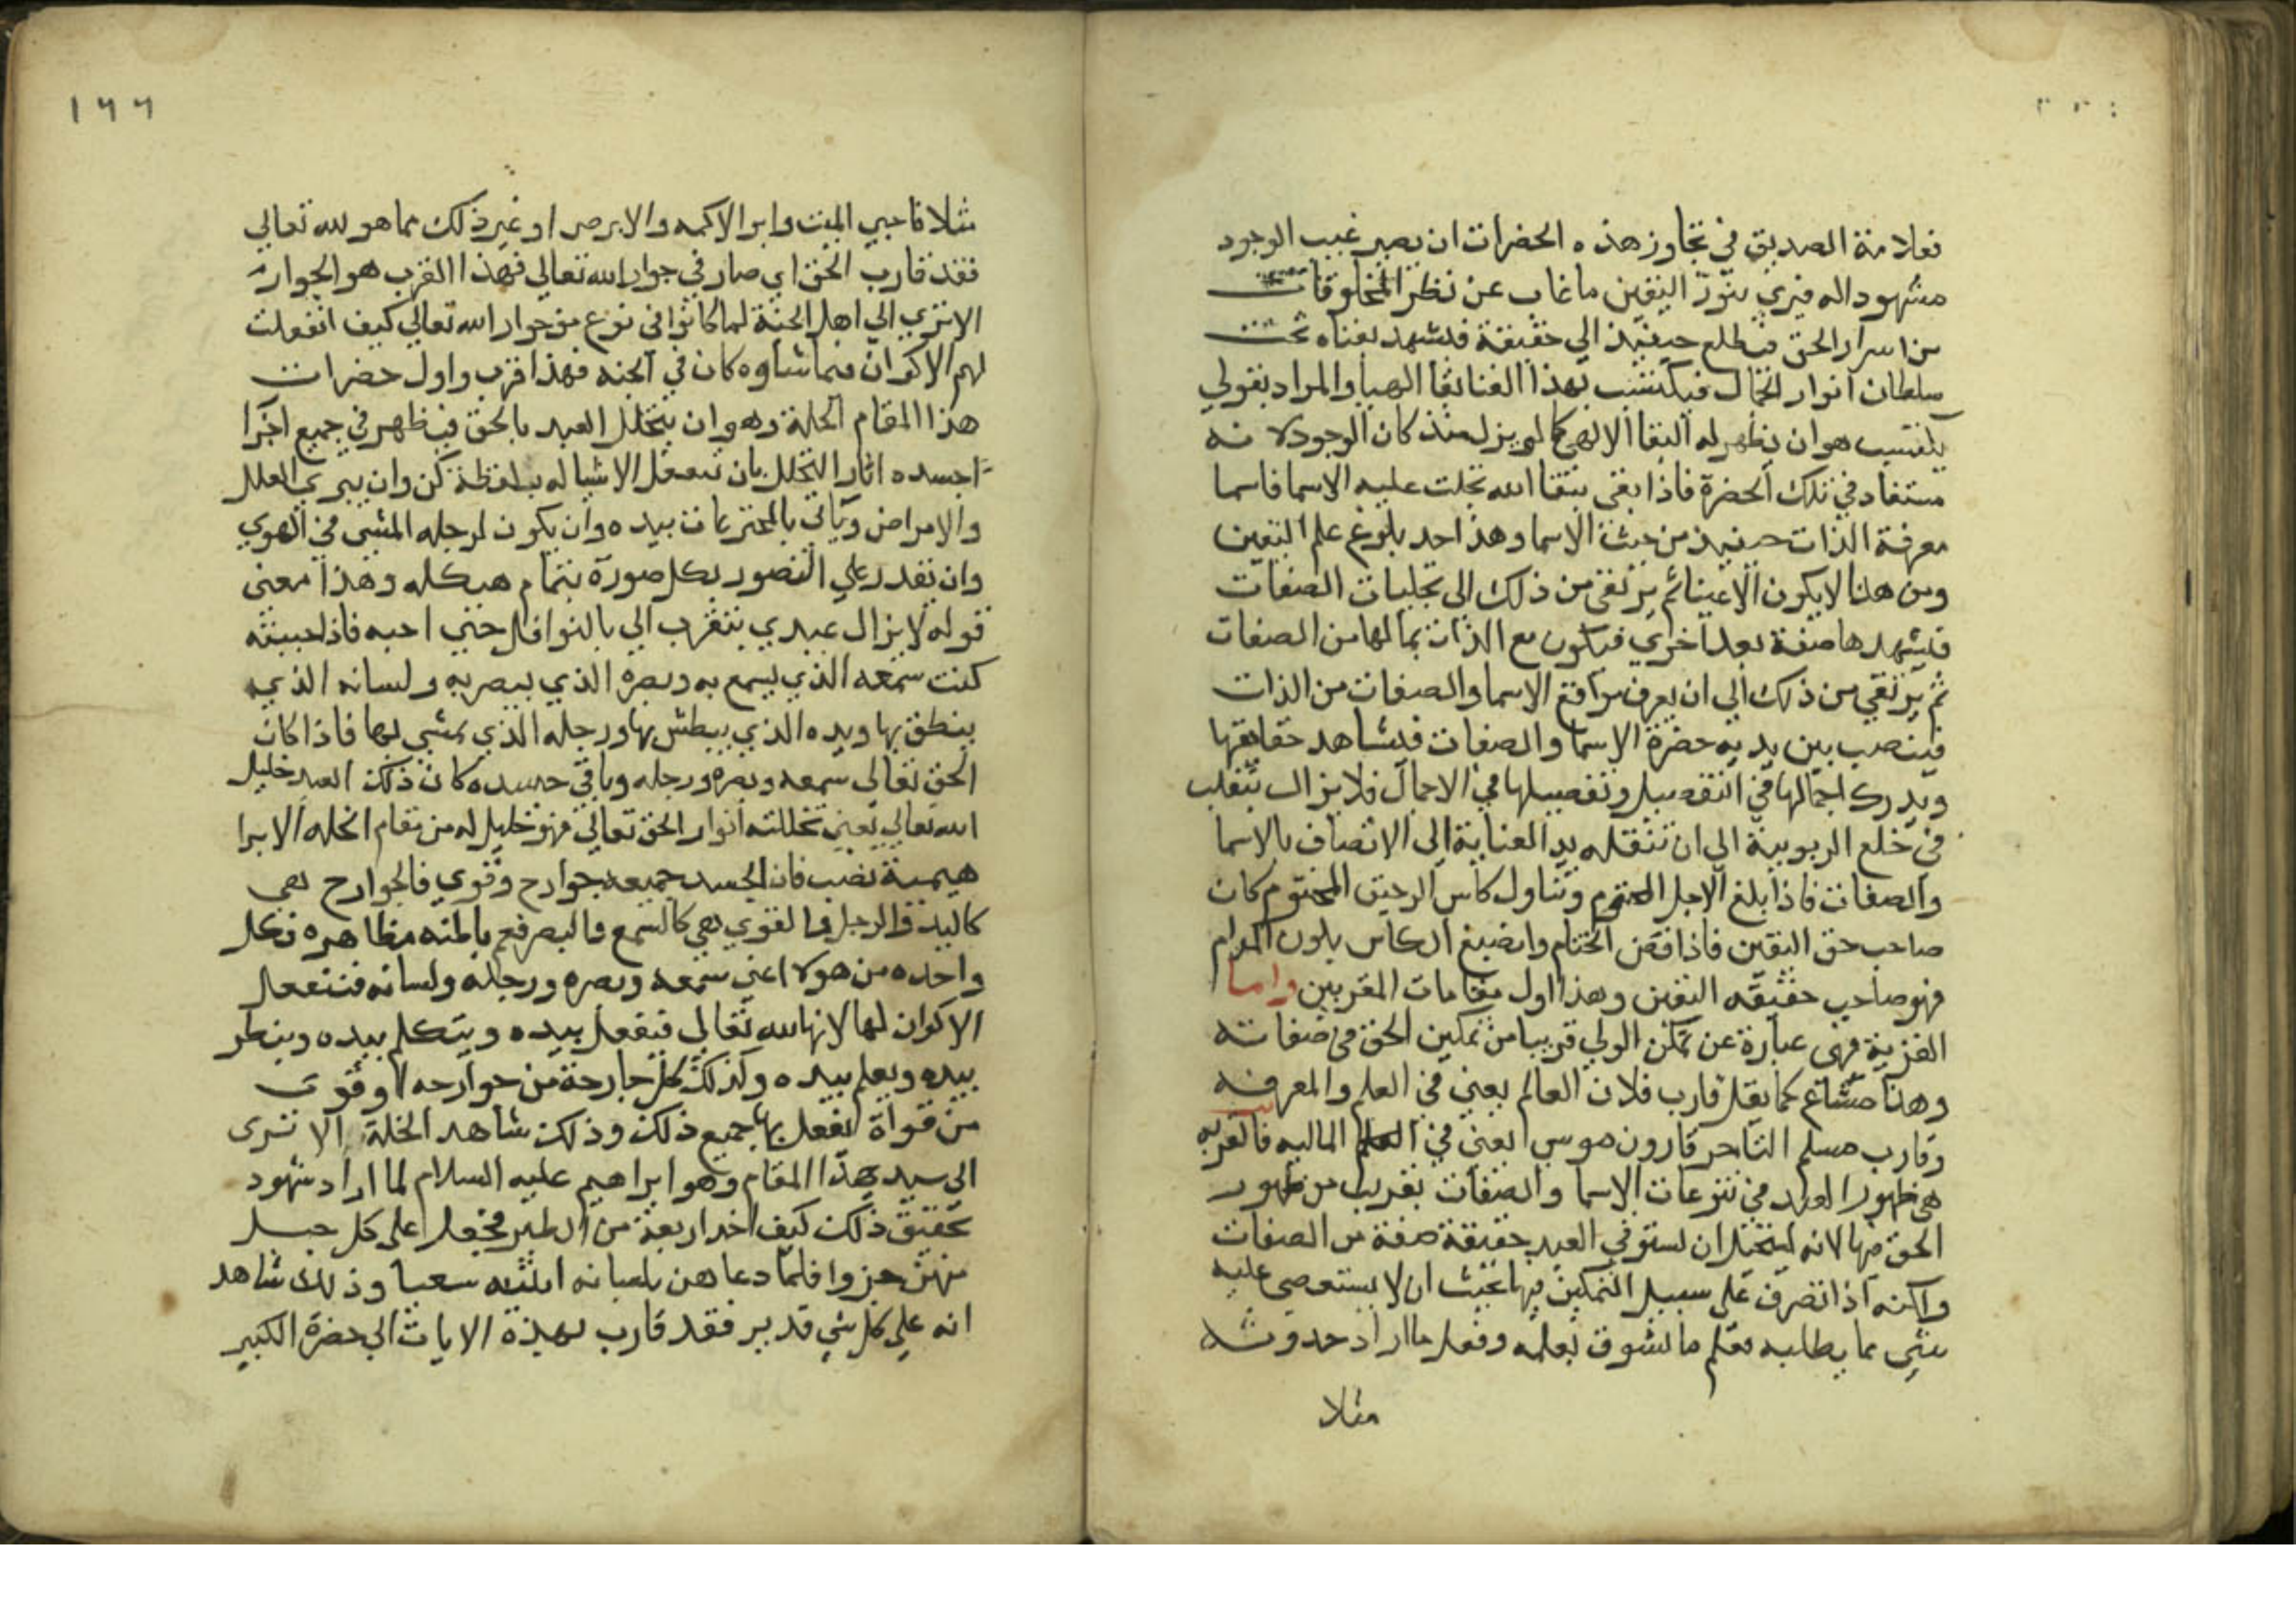 فعلامة الصديق في تجاوز هذه الحضرات ان يصير غيب الوجود
مشهودا له فيري بنور اليقين ما غاب عن نظر المخلوقات
من اسرار الحق فيطلع حينيذ الي حقيقة فيشهد بفناه تحت
سلطان انوار الجمال فيكتسب بهذا الفنا بقا الهيا والمراد بقولي
يكتسب هو ان يظهر له البقا الالهي كما لم يزل منذ كان الوجود لا نه
مستفاد في تلك الحضرة فاذا بقي ببقا الله تجلت عليه الاسما فاسما
معرفة الذات حينيذ من حيث الاسما وهذا حد بلوغ علم اليقين
ومن هنا لا يكون الا عينا ثم يرتقي من ذلك الى تجليات الصفات
فيشهدها صفة بعد اخري فيكون مع الذات بما لها من الصفات
ثم يرتقي من ذلك الي ان يعرف مواقع الاسما والصفات من الذات
فينصب بين يديه حضرة الاسما والصفات فيشاهد حقايقها
ويدرك اجمالها في التفصيل وتفصيلها في الاجمال فلا يزال يتقلب
في خلع الربوبية الي ان تنقله يد العناية الى الاتصاف بالاسما
والصفات فاذا بلغ الاجل المحتوم وتناول كاس الرحيق المختوم كان
صاحب حق اليقين فاذا فض الختام وانصبغ الكاس بلون المدام
فهو صاحب حقيقة اليقين وهذا اول مقامات المقربين واما
القربة فهى عبارة عن تمكن الولي قريبا من تمكين الحق في صفاته
وهذا مشاع كما يقال قارب فلان العالم يعني في العلم والمعرفه
وقارب مسلم التاجر قارون موسي يعني في الماليه فالقربه
هى ظهور العبد في تنوعات الاسما والصفات بقريب من ظهور
الحق فيها لانه يستحيل ان يستوفي العبد حقيقة صفة من الصفات
ولكنه اذا تصرف على سبيل التمكين فيها بحيث ان لا يستعصي عليه
شي مما يطلبه فعلم ما تشوق بعلمه وفعل ما اراد حدوثه
مثلا
١٦٦
مثلا فاحيي الميت وابرا الاكمه والابرص او غير ذلك مما هو لله تعالي
فقد قارب الحق اي صار في جوار الله تعالي فهذا القرب هو الجوار
الا تري الي اهل الجنة لما كانوا في نوع من جوار الله تعالي كيف انفعلت
لهم الاكوان فما شاوه كان في الجنه فهذا قرب واول حضرات
هذا المقام الخلة وهو ان يتخلل العبد بالحق فيظهر في جميع اجزا
جسده اثار التخلل بان تنفعل الاشيا له بلفظة كن وان يبري العلل
والامراض وياتي بالمخترعات بيده وان يكون لرجله المشي في الهوي
وان يقدر علي التصور بكل صورة بتمام هيكله وهذا معنى
قوله لا يزال عبدي يتقرب الي بالنوافل حتي احبه فاذا احببته
كنت سمعه الذي يسمع به وبصره الذي يبصر به ولسانه الذي
ينطق بها ويده الذي يبطش بها ورجله الذي يمشي بها فاذا كان
الحق تعالى سمعه وبصره ورجله وباقي جسده كان ذلك العبد خليل
الله تعالي يعني تخللته انوار الحق تعالي فهو خليل له من مقام الخله الابرا
هيمية نصيب فان الجسد جميعه جوارح وقوي فالجوارح هي
كاليد والرجل والقوي هي كالسمع والبصر فعم باطنه مظاهره فكل
واحده من هولا اعني سمعه وبصره ورجله ولسانه فتنفعل
الاكوان لها لانها لله تعالي فيفعل بيده ويتكلم بيده وينظر
بيده ويعلم بيده وكذلك كل جارحة من جوارحه او قوى
من قواة يفعل بها جميع ذلك وذلك شاهد الخلة الا ترى
الى سيد هذا المقام وهو ابراهيم عليه السلام لما اراد شهود
تحقيق ذلك كيف اخذ اربعة من الطير فجعل على كل جبل
منهن جزوا فلما دعاهن بلسانه اتينه سعيا وذلك شاهد
انه علي كل شي قدير فقد قارب بهذة الايات الي حضرة الكبير